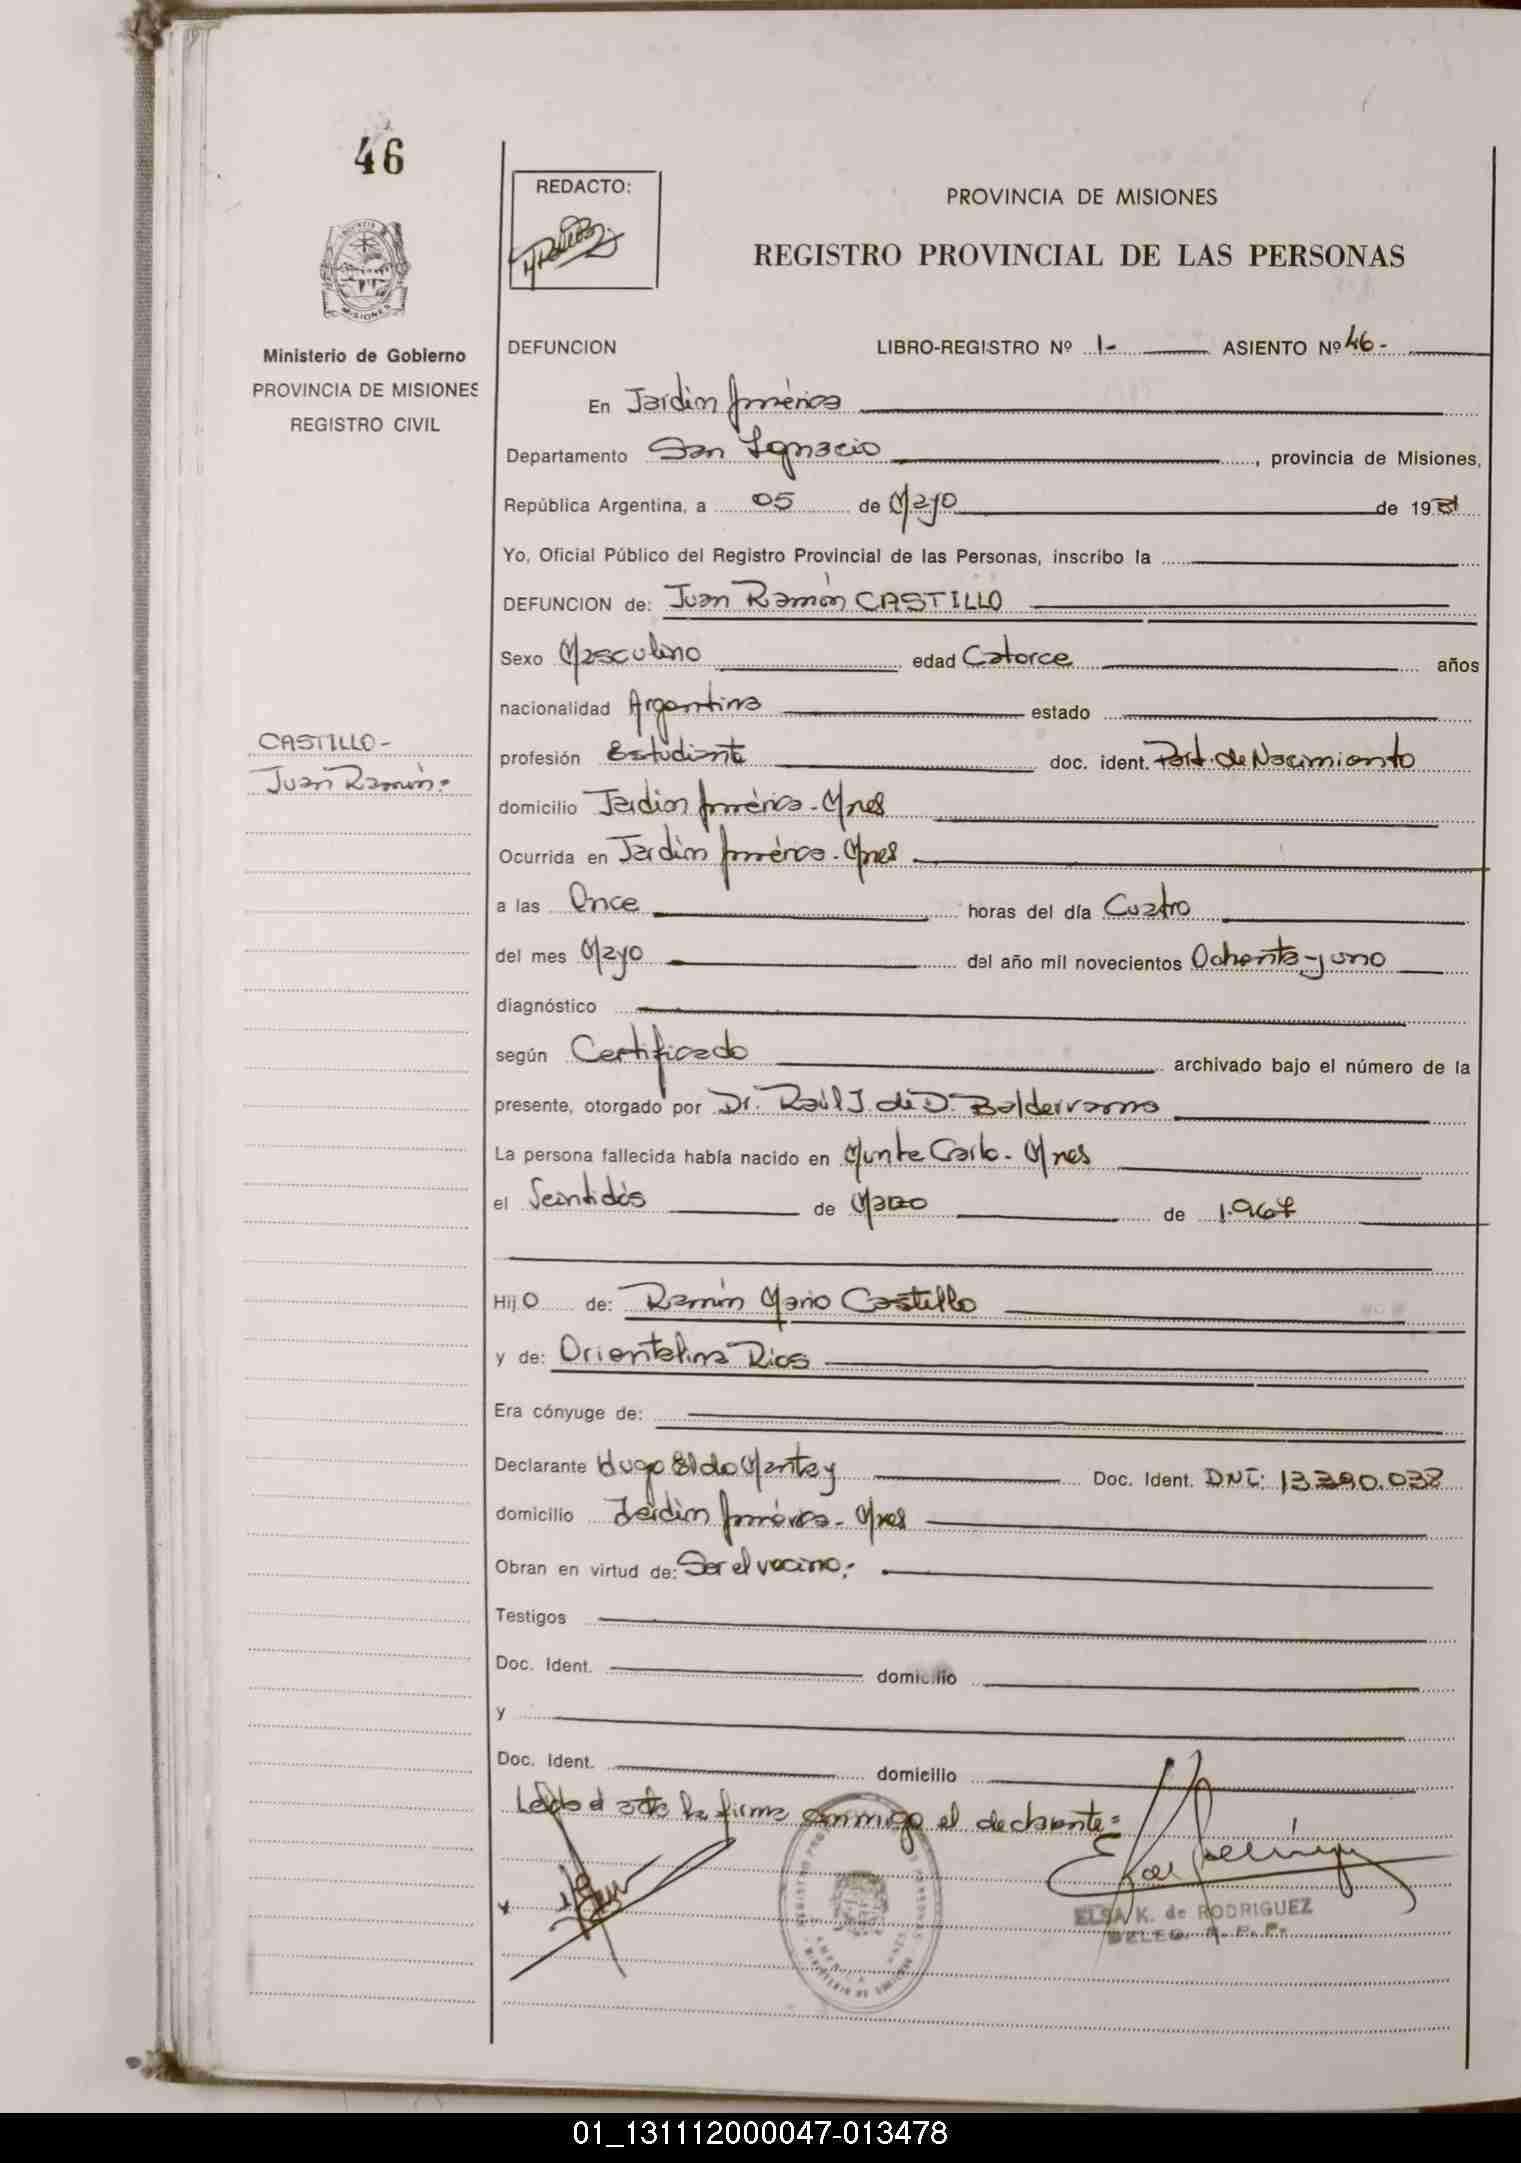 46
REDACTO:
PROVINCIA DE MISIONES
REGISTRO PROVINCIAL DE LAS PERSONAS
MISIONES
Ministerio de Gobierno
PROVINCIA DE MISIONES
REGISTRO CIVIL
DEFUNCION LIBRO-REGISTRO Nº 1- ASIENTO Nº 46-
En Jardin América
Departamento San Ignacio, provincia de Misiones,
República Argentina, a 05 de Mayo de 1981
Yo, Oficial Público del Registro Provincial de las Personas, inscribo la
DEFUNCION de: Juan Ramón CASTILLO
Sexo Masculino edad Catorce años
nacionalidad Argentina estado
CASTILLO-
Juan Ramón=
profesión Estudiante doc. ident. Part. de Nacimiento
domicilio Jardin América - Mnes
Ocurrida en Jardin América - Mnes
a las Once horas del día Cuatro
del mes Mayo del año mil novecientos Ochenta y uno
diagnóstico
según Certificado archivado bajo el número de la
presente, otorgado por Dr. Raúl J. de D. Balderrama
La persona fallecida había nacido en Munte Carlo - Mnes
el Veintidós de Marzo de 1.967
Hijo de: Ramón Mario Castillo
y de: Orientalina Rios
Era cónyuge de:
Declarante Hugo Eldo Mantey Doc. Ident. DNI: 13.390.038
domicilio Jardin América - Mnes
Obran en virtud de: Ser el vecino;
Testigos
Doc. Ident. domicilio
y
Doc. Ident. domicilio
Leído el acta la firma conmigo el declarante=
ELSA K. de RODRIGUEZ
DELEG. R. P. P.
01_131112000047-013478